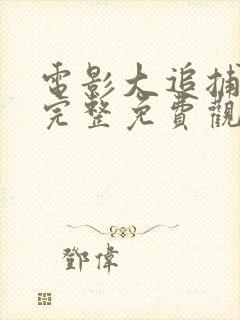 電影大追捕
完整免費觀
鄧偉